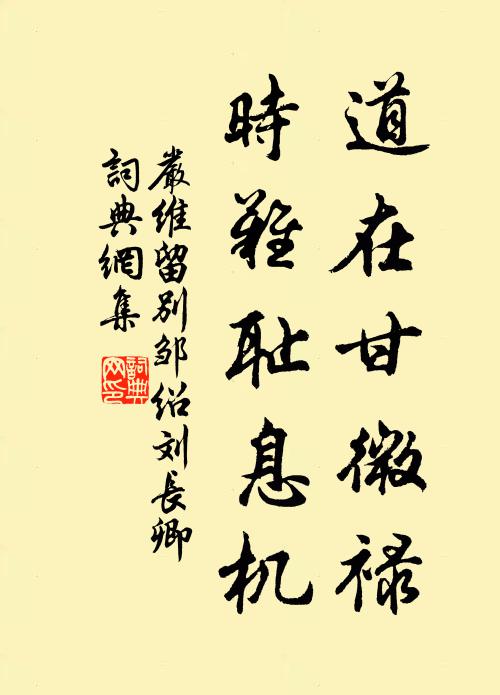 道在甘微禄
時難耻息机
嚴維留别邹绍刘長卿
詞典網集
詞典网印